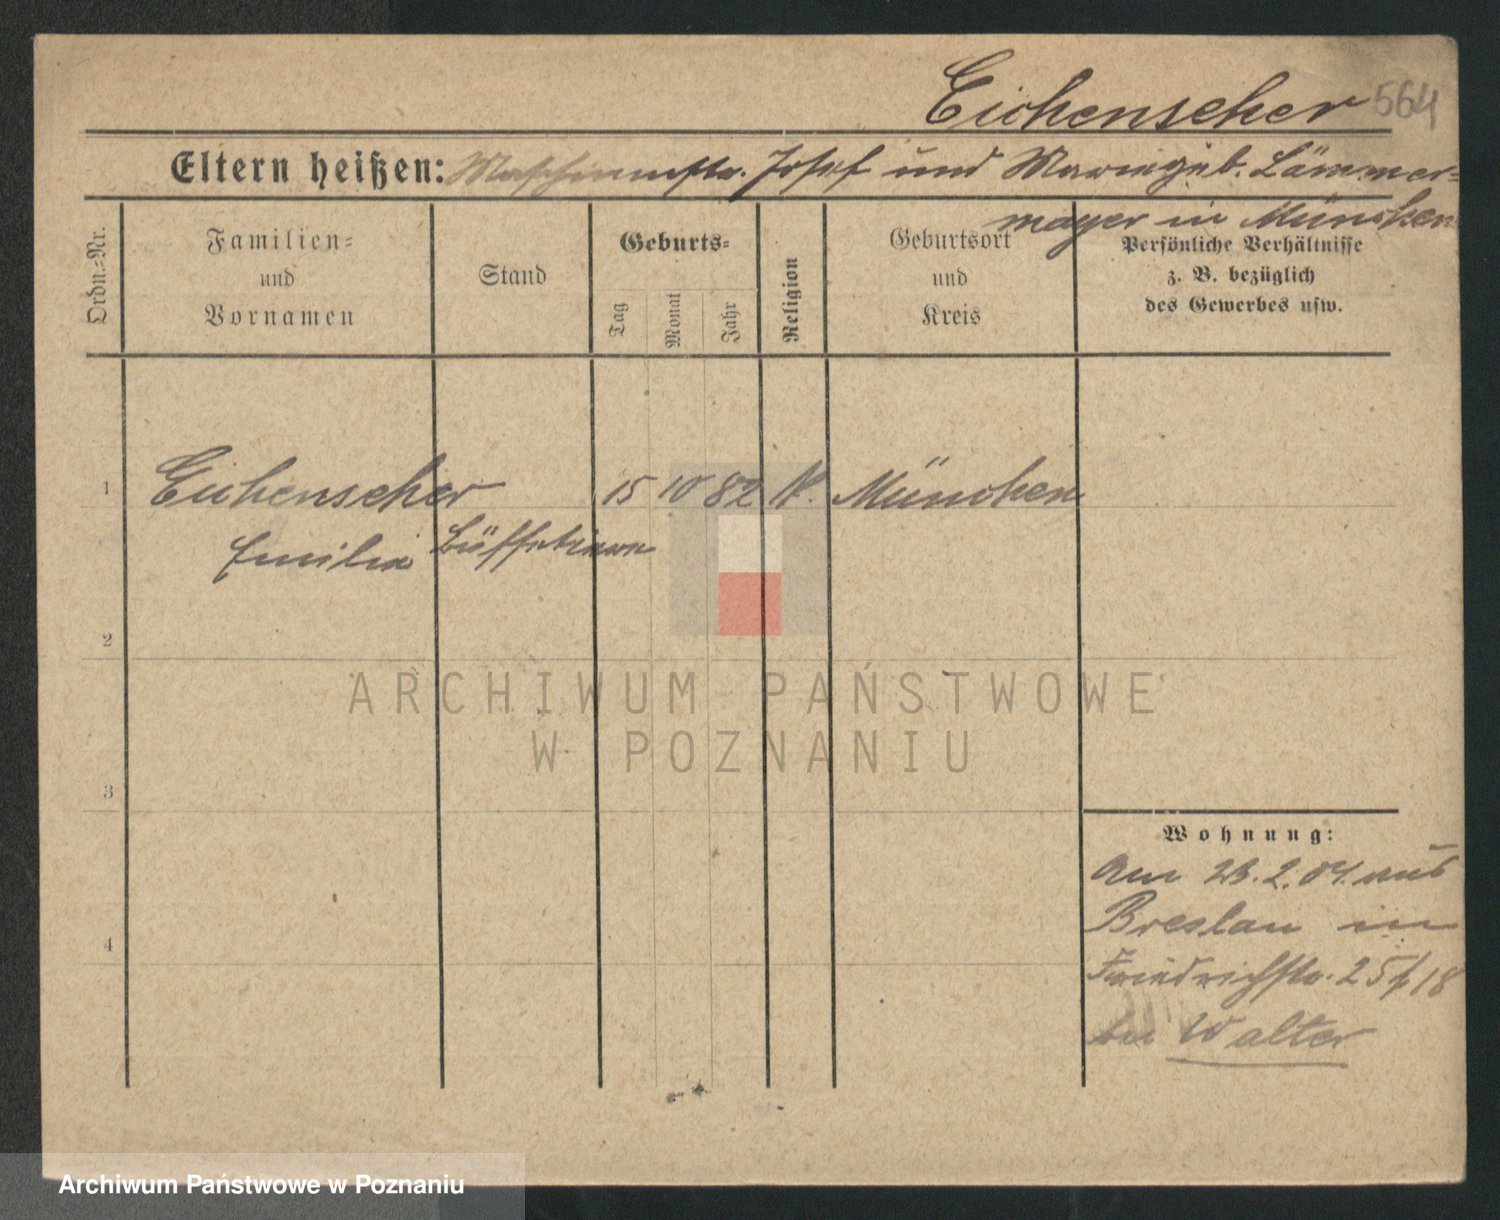 Eichenseher 564
Eltern heißen: Maschinenstr. Josef und Marie geb. Lämmer=
mayer in München
Ordn.=Nr.
Familien=
und
Vornamen
Stand
Geburts=
Tag
Monat
Jahr
Religion
Geburtsort
und
Kreis
Persönliche Verhältnisse
z. B. bezüglich
des Gewerbes usw.
1 Eichenseher 15 10 82 K. München
Emilie Büffetiere
2
ARCHIWUM PAŃSTWOWE
W POZNANIU
3
Wohnung:
Am 23.2.04. aus
Breslau in
4
Friedrichstr. 25/18
bei Walter
Archiwum Państwowe w Poznaniu